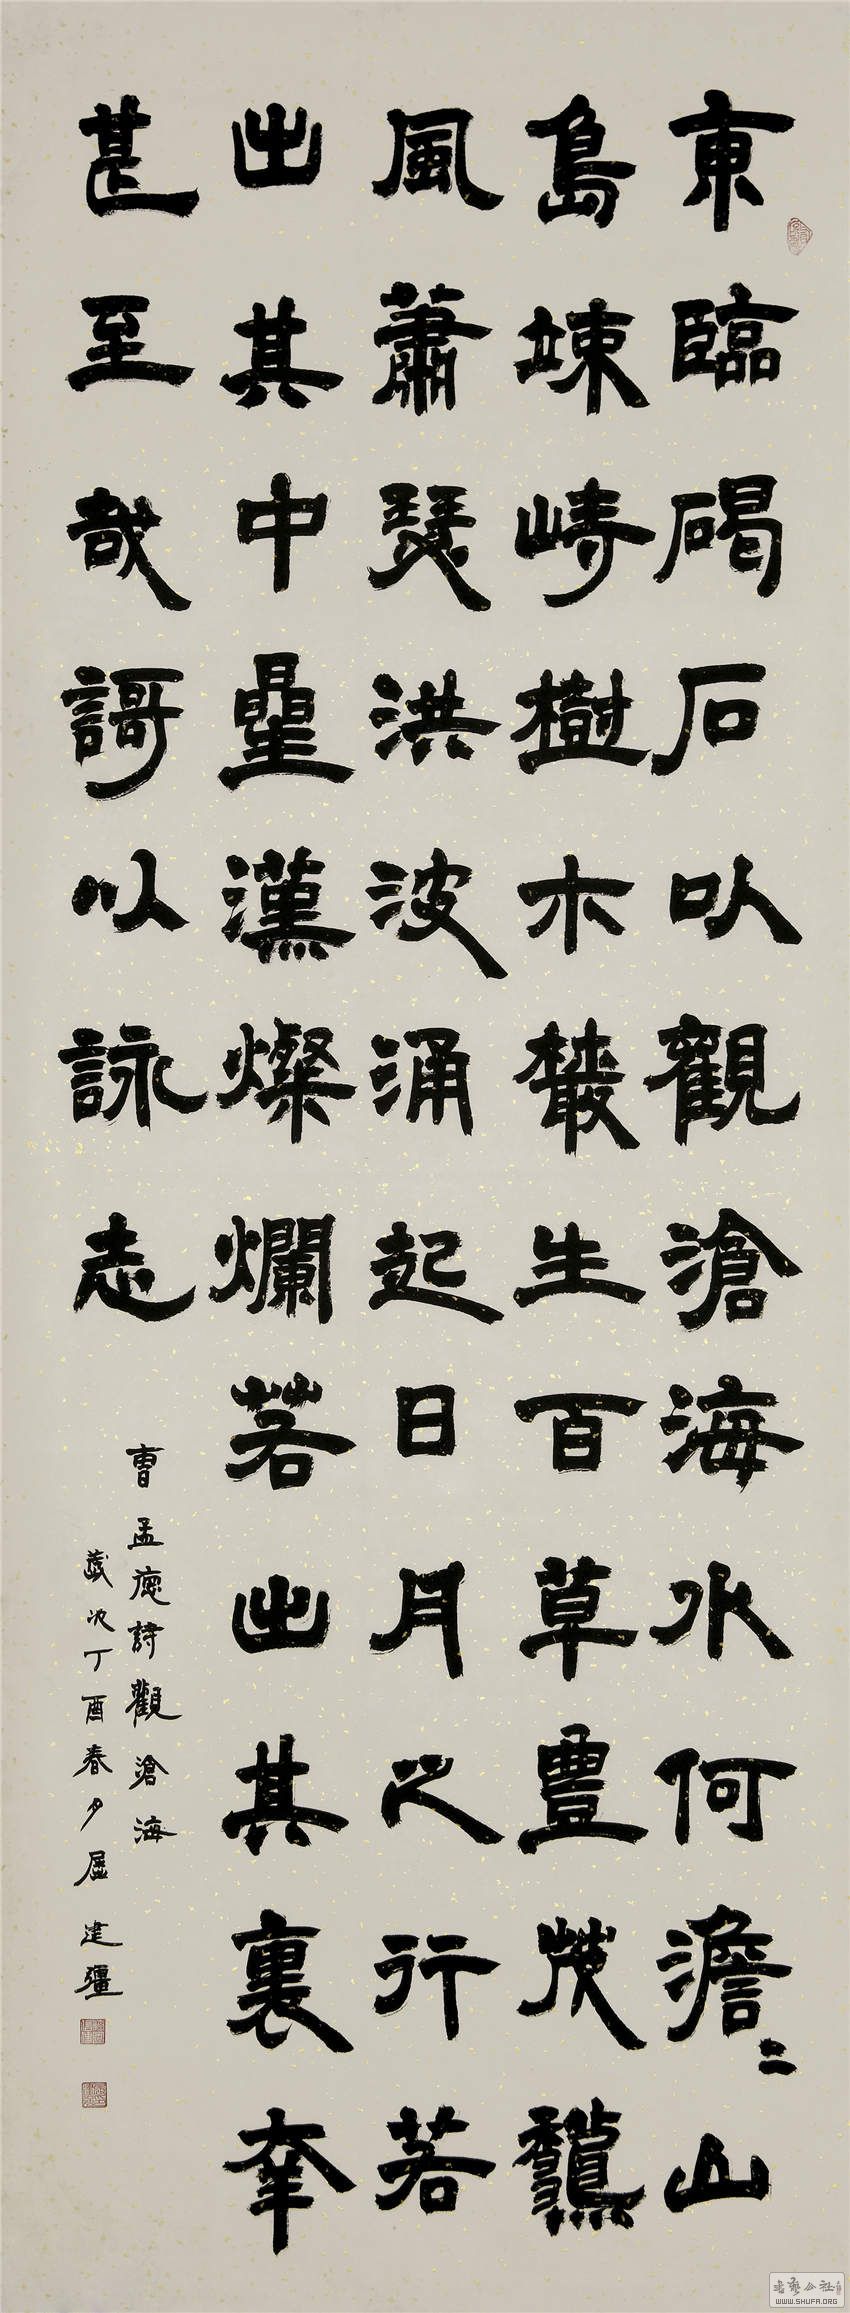 東臨碣石以觀滄海水何澹二山
島竦峙樹木叢生百草豐茂龝
風蕭瑟洪波涌起日月之行若
出其中曐漢燦爛若出其裏幸
甚至哉謌以詠志
曹孟德詩觀滄海
歲次丁酉春夕建疆
書藝公社
WWW.SHUFA.ORG